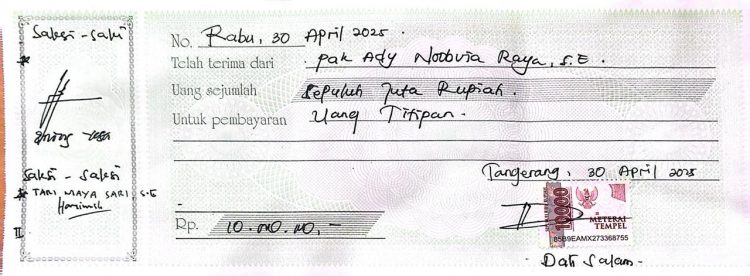 Saksi - saksi
No. Rabu, 30 April 2025.
Telah terima dari pak Ady Noobvia Raya, S.E.
Uang sejumlah Sepuluh Juta Rupiah.
Untuk pembayaran Uang Titipan.
Saksi - Saksi
TARI MAYA SARI, S.E
II
Tangerang, 30 April 2025
10000
METERAI
TEMPEL
85B9EAMX273368755
Rp. 10.000.000,-